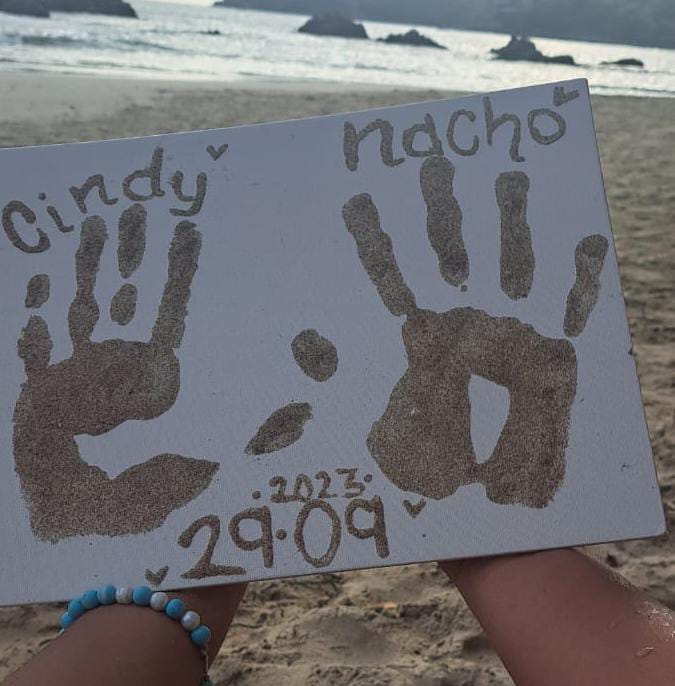 Cindy
nacho
.2023.
29.09